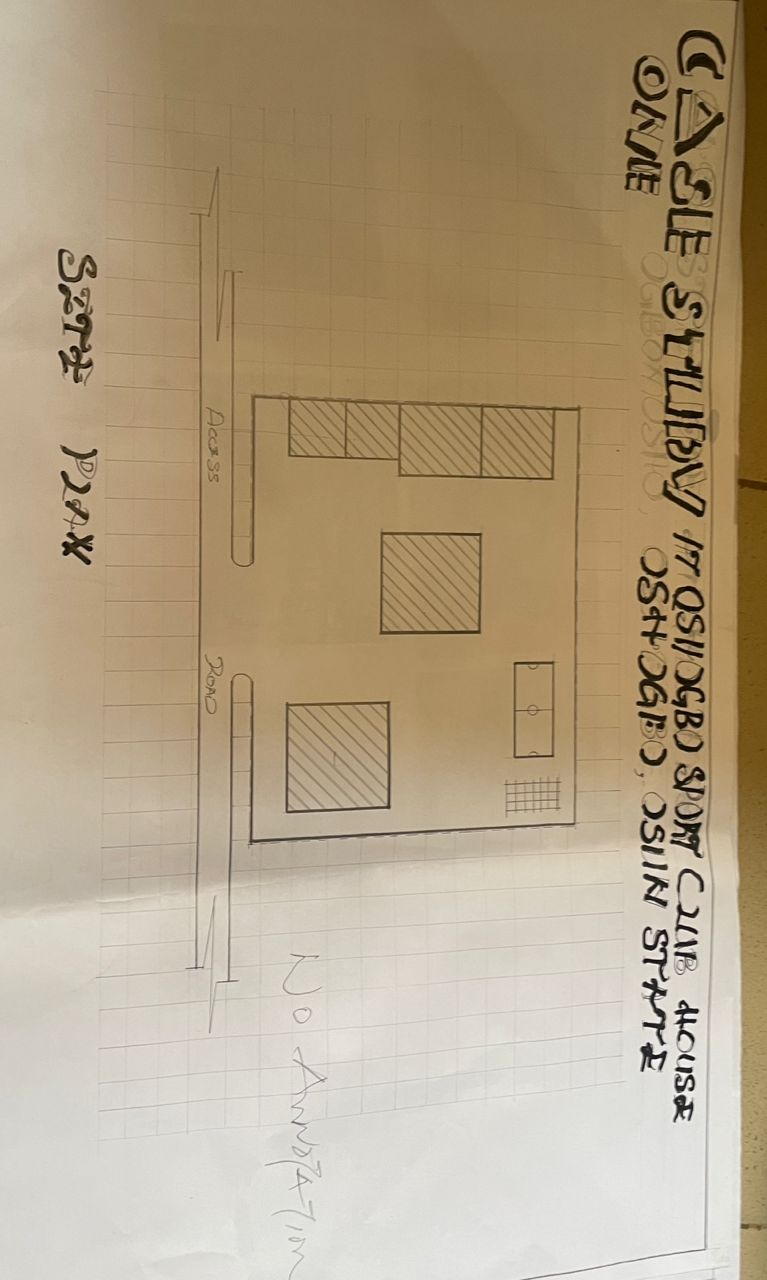 CASE STUDY 1: OSHOGBO SPORT CLUB HOUSE
ONE OSHOGBO, OSUN STATE
ACCESS ROAD
NO ANNOTATION
SITE PLAN